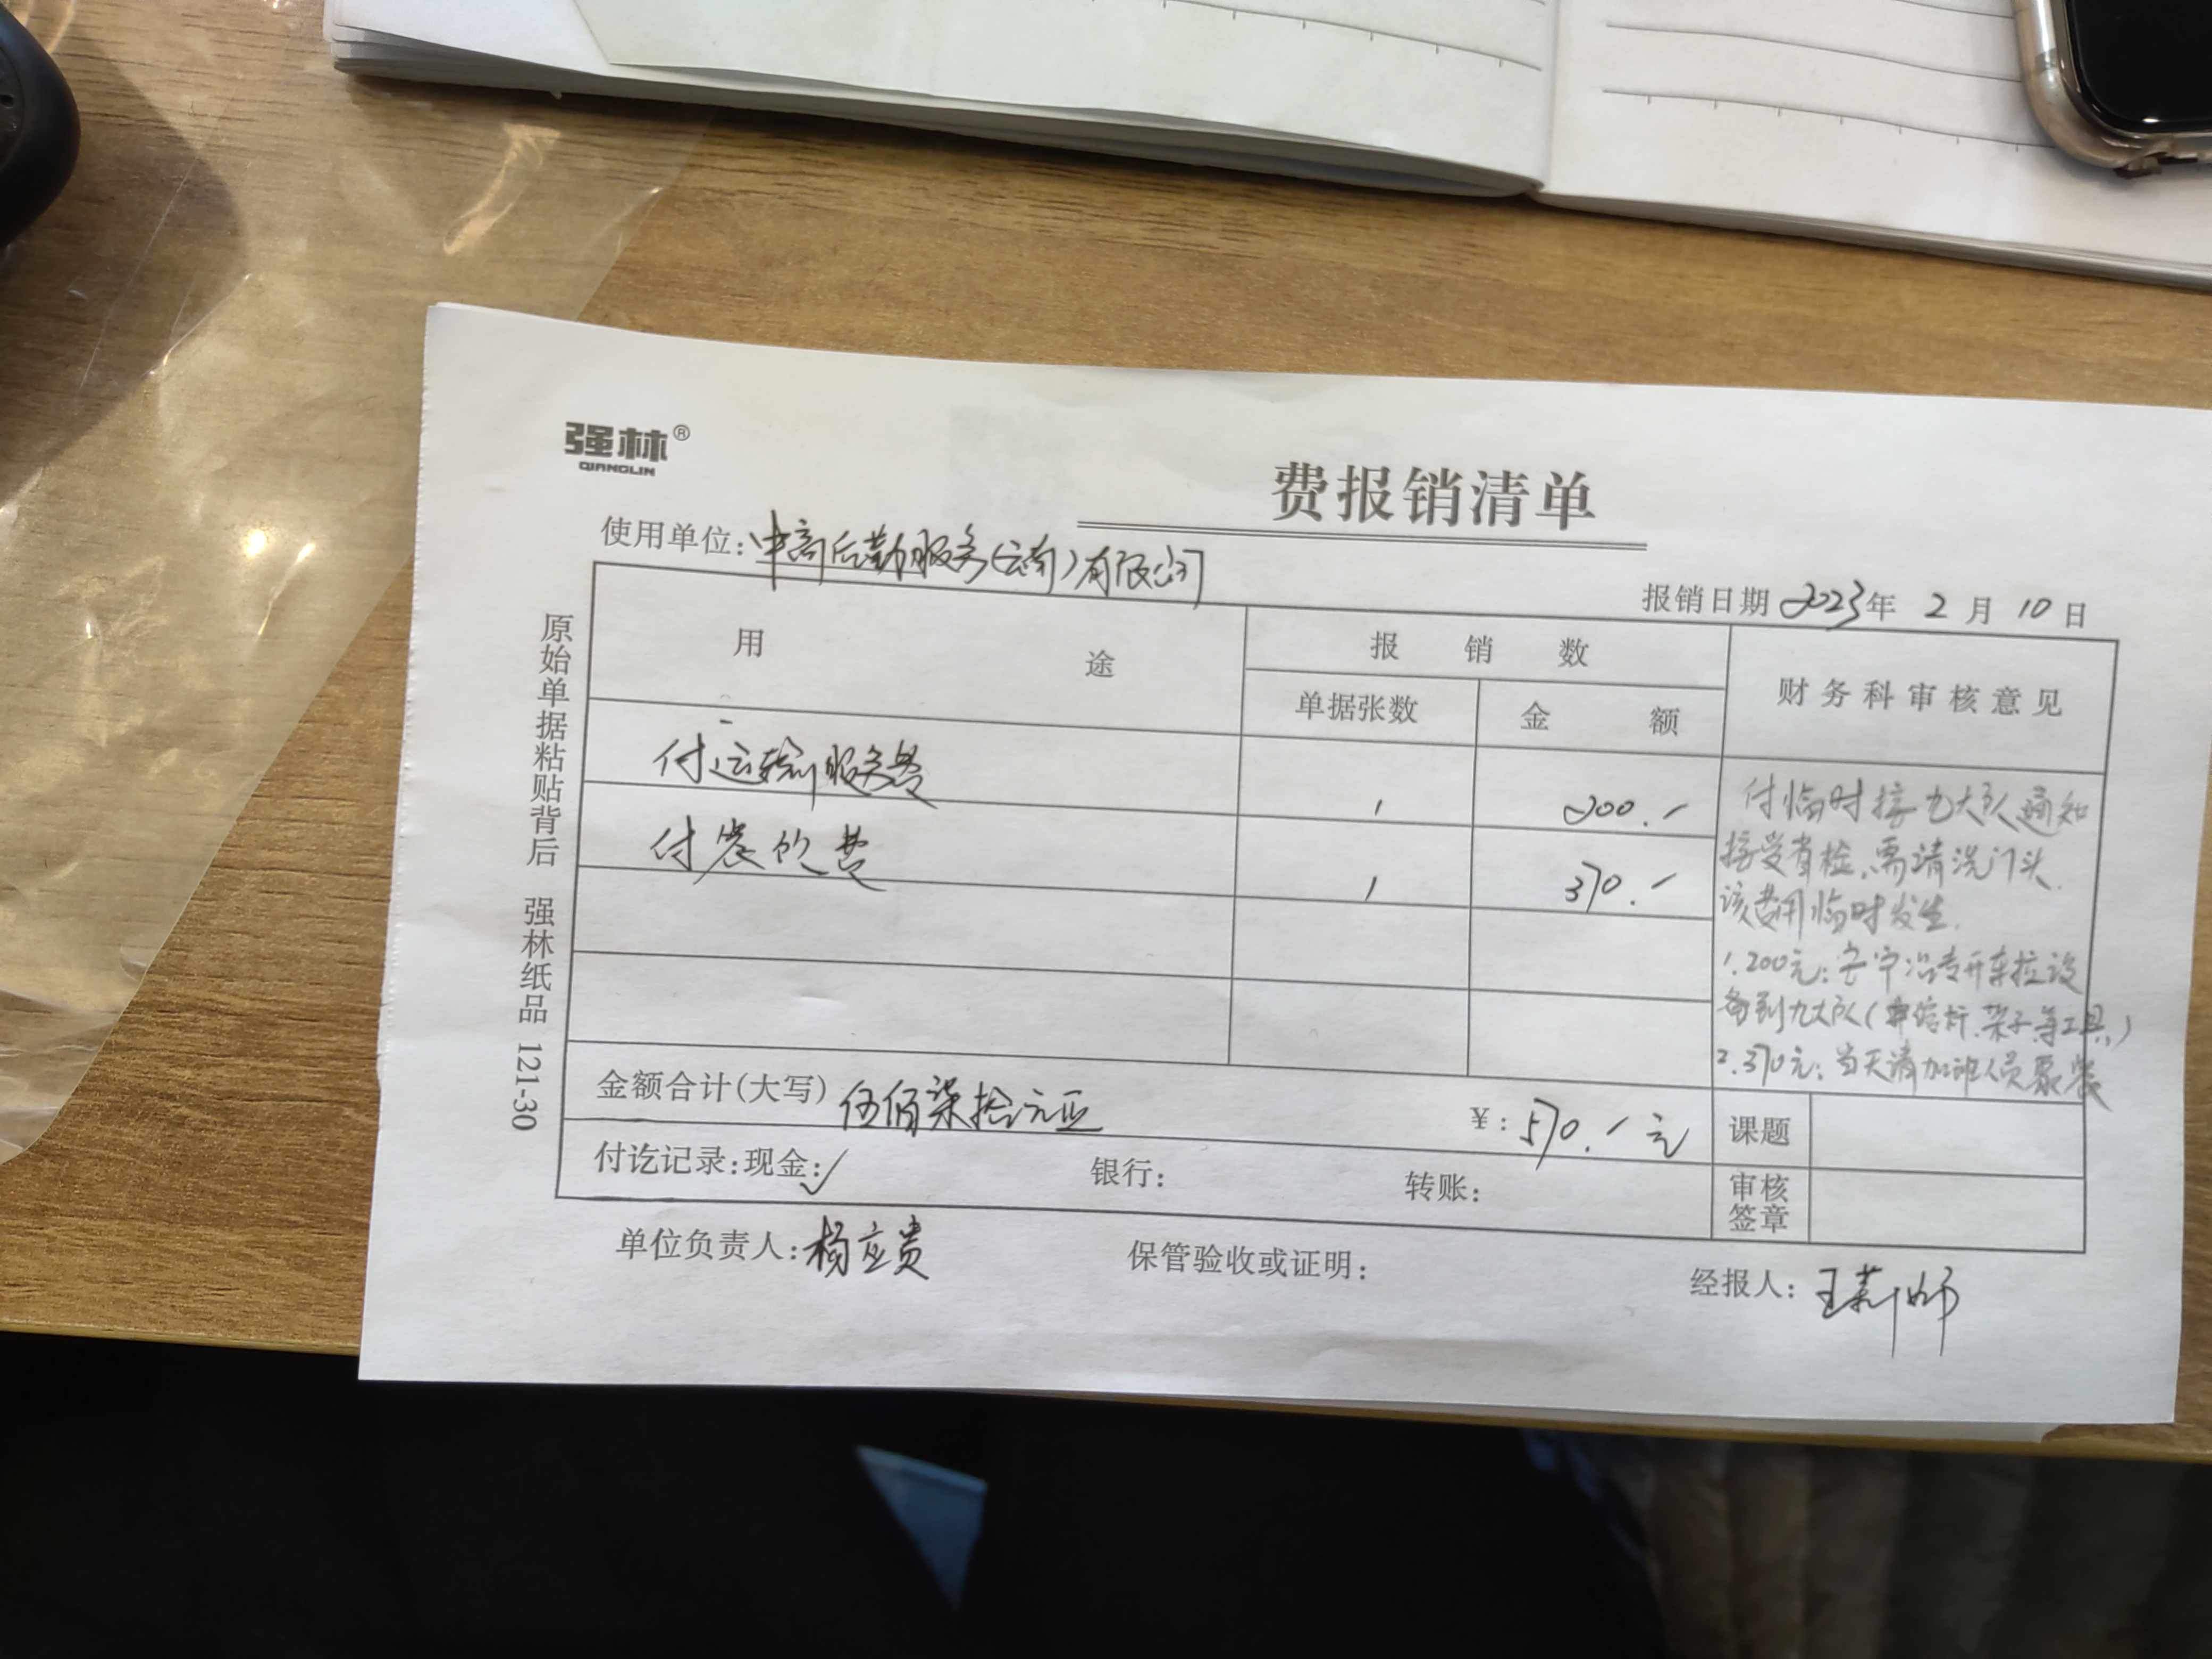 强林®
QIANGLIN
费报销清单
使用单位:中商后勤服务(云南)有限公司
报销日期 2023年 2 月 10 日
用 途
报 销 数
单据张数
金 额
财务科审核意见
付运输服务费 1 200.-
付餐饮费 1 370.-
付临时接九大队通知
接受省检,需请洗门头.
该费用临时发生.
1.200元:安宁冶专开车拉设
备到九大队( 架子等工具)
2.370元:当天请加班人员聚餐
金额合计(大写) 伍佰柒拾元正 ¥:570.-元
课题
付讫记录:现金:✓ 银行: 转账:
审核
签章
单位负责人:杨应贵 保管验收或证明: 经报人:王
原始单据粘贴背后 强林纸品 121-30